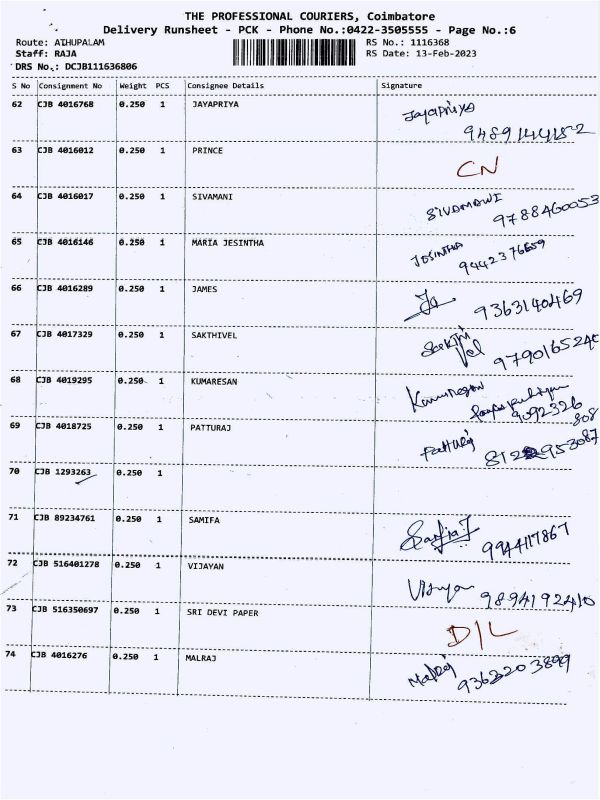 THE PROFESSIONAL COURIERS, Coimbatore
Delivery Runsheet - PCK - Phone No.:0422-3505555 - Page No.:6
Route: ATHUPALAM RS No.: 1116368
Staff: RAJA RS Date: 13-Feb-2023
DRS No.: DCJB111636806
S No Consignment No Weight PCS Consignee Details Signature
62 CJB 4016768 0.250 1 JAYAPRIYA Jayapriya
9489144182
63 CJB 4016012 0.250 1 PRINCE CN
64 CJB 4016017 0.250 1 SIVAMANI SIVAMANI
9788460053
65 CJB 4016146 0.250 1 MARIA JESINTHA JESINTHA
9442376659
66 CJB 4016289 0.250 1 JAMES Ja
9363140469
67 CJB 4017329 0.250 1 SAKTHIVEL Sakthi
vel 9790165240
68 CJB 4019295 0.250 1 KUMARESAN Kumaresan
9092326
808
69 CJB 4018725 0.250 1 PATTURAJ Patturaj
953087
70 CJB 1293263 0.250 1
71 CJB 89234761 0.250 1 SAMIFA
9944117867
72 CJB 516401278 0.250 1 VIJAYAN Vijayan
9894192410
73 CJB 516350697 0.250 1 SRI DEVI PAPER D/L
74 CJB 4016276 0.250 1 MALRAJ Malraj
9363203899